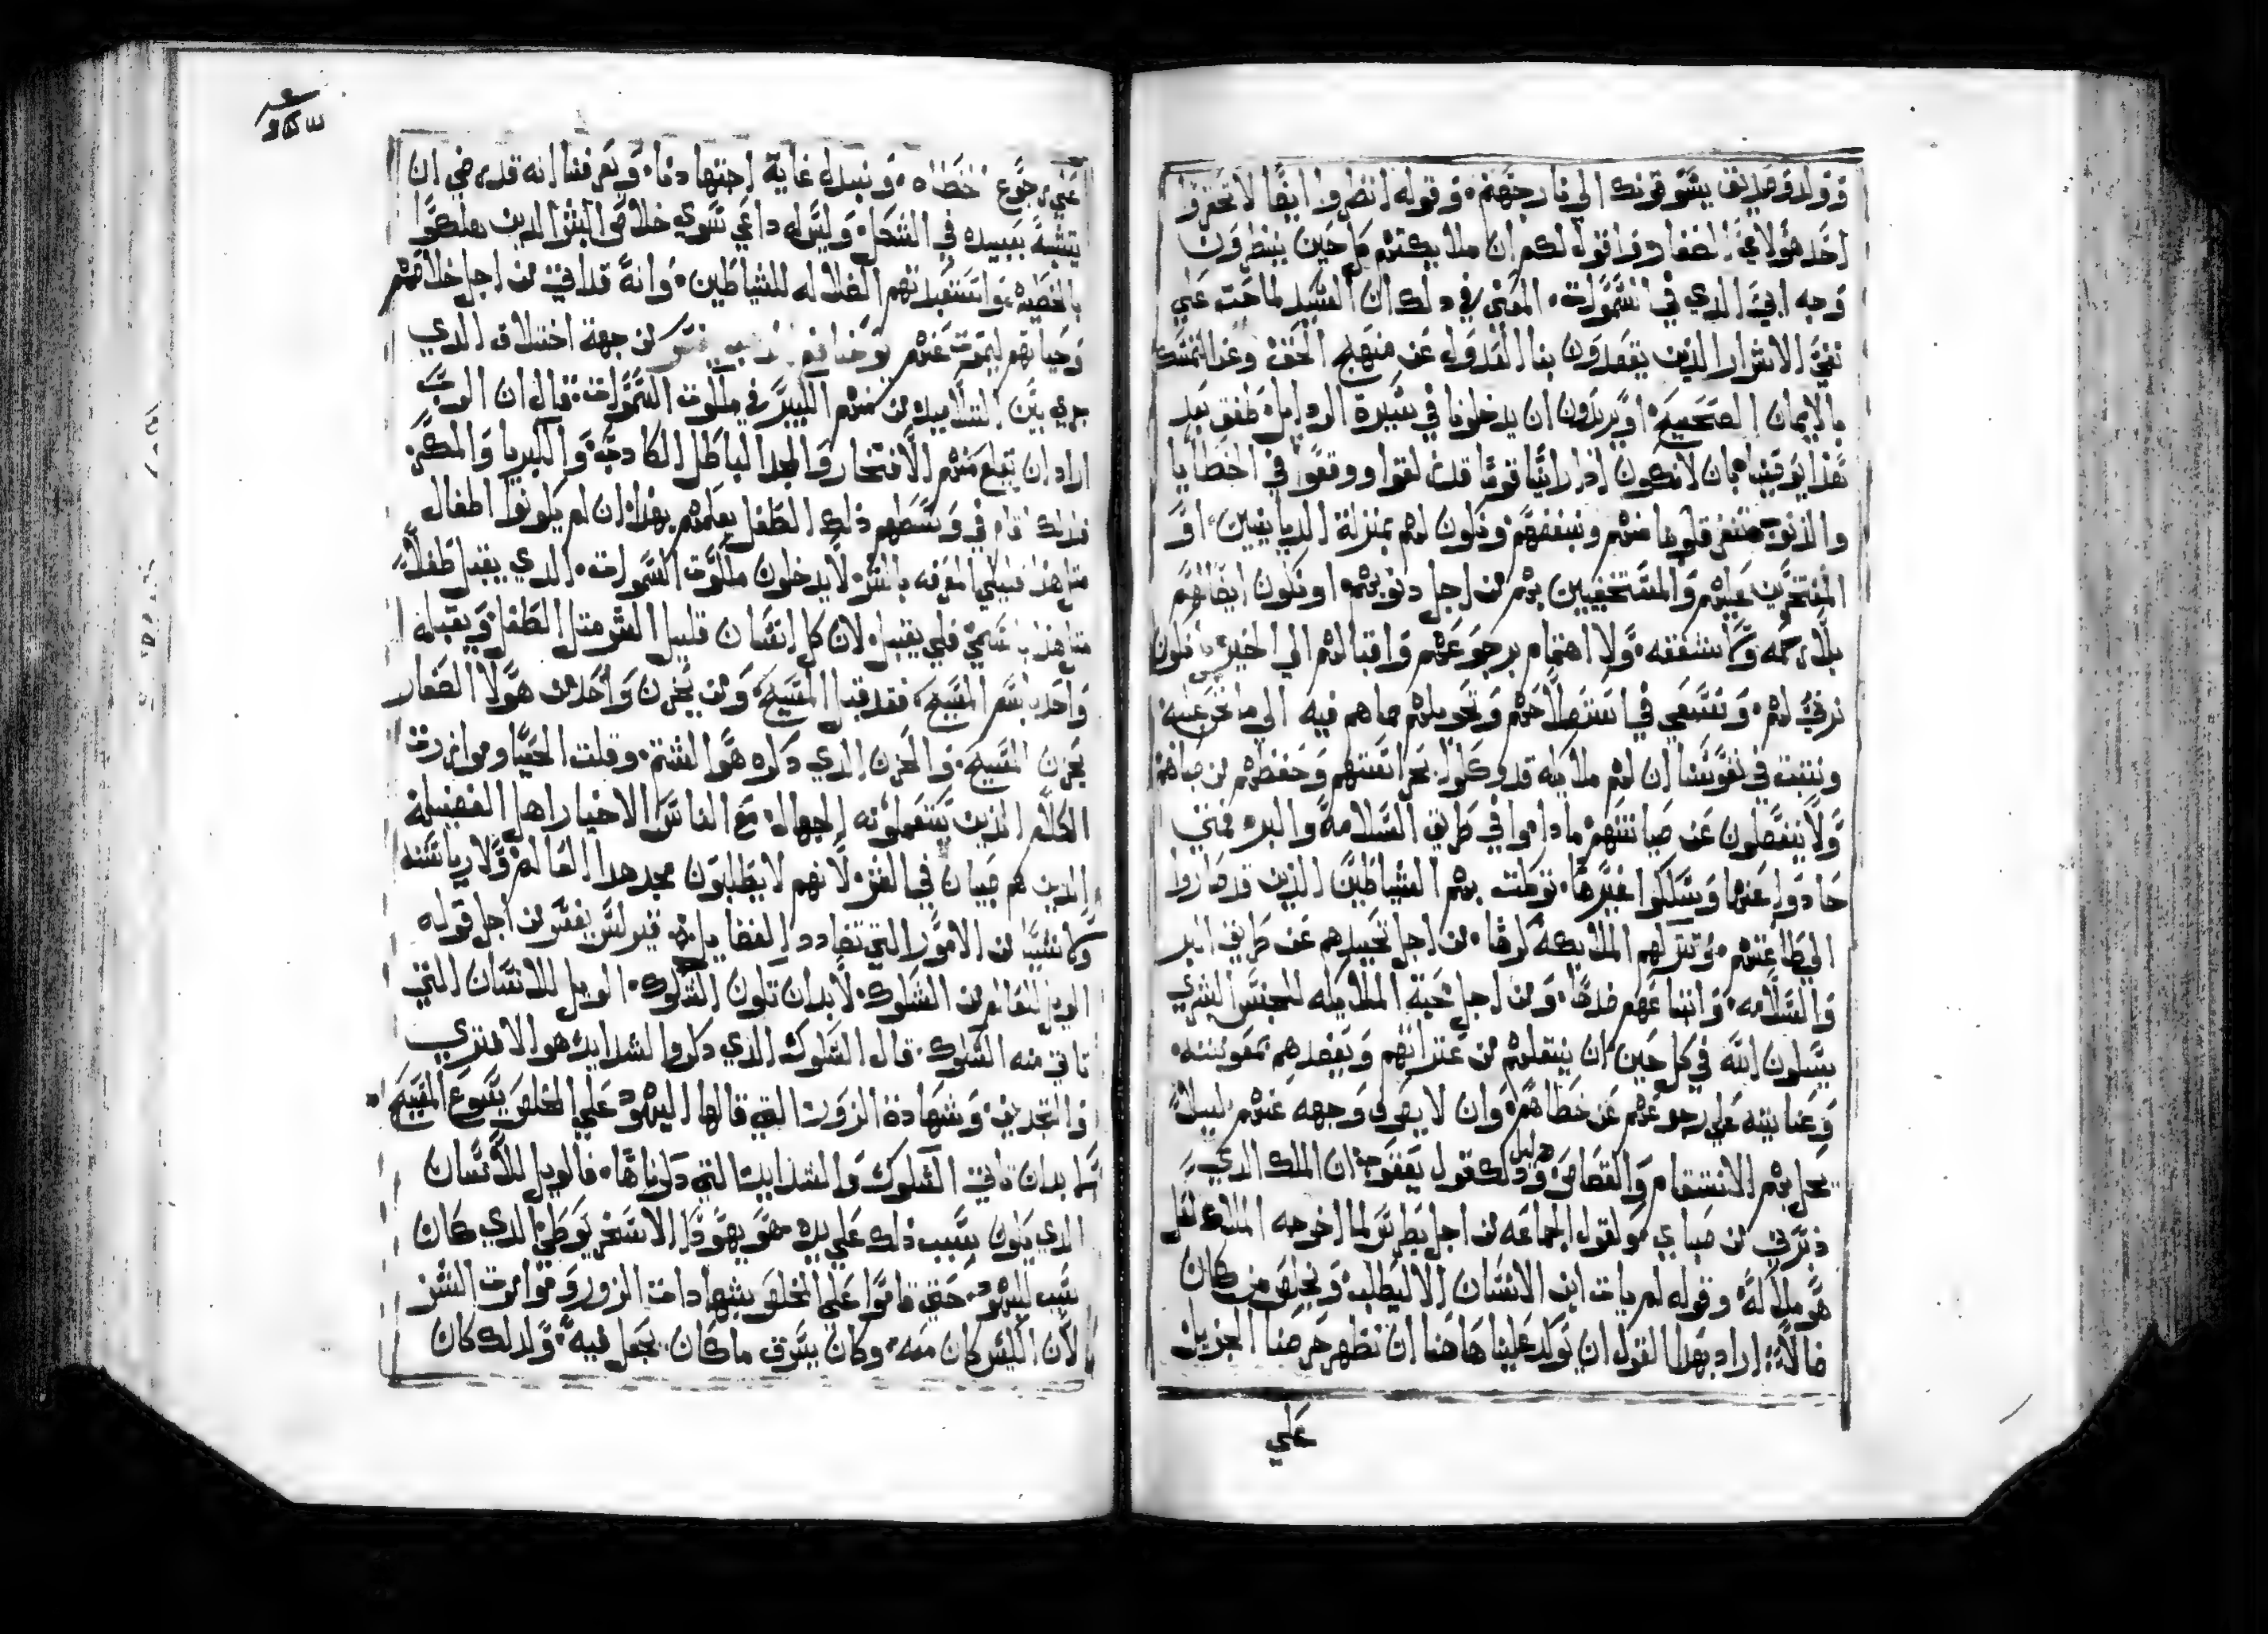 وولد وصديق يسوقونك الي نار جهنم. وقوله انظروا ايضًا لا تحقروا
احد هولاء الصغار واقول لكم ان ملايكتهم كل حين ينظرون
وجه ابي الذي في السموات. المعني في ذلك ان السيد لما حث علي
نفي الاشرار الذين يقصدون بنا العدول عن منهج الحق وعن التمسك
بالايمان الصحيح. او يريدون ان يدخلونا في سيرة الرذايل. طفق بعد
هذا يوصينا بان لا نكون اذا راينا قومًا قد لغوا ووقعوا في الخطايا
والذنوب فتنفر قلوبنا منهم ونبغضهم ونكون لهم بمنزلة الديانيين. او
المفتخرين عليهم والمستخفين بهم من اجل ذنوبهم. او نكون ايضًا لهم
بلا رحمه ولا شفقه. ولا اهتمام برجوعهم واقبالهم الي الخير بل نكون
نرق لهم. ونسعي في استصلاحهم وتحويلهم مما هم فيه الي ما نحن عليه.
ونثبت في نفوسنا ان لهم ملايكه قد وكلوا بحراستهم وحفظهم من صباهم
ولا ينفصلون عن صيانتهم ما داموا في طريق السلامة والبر. فمتي
حادوا عنها وسلكوا غيرها. توكلت بهم الشياطين الذين قد صاروا
الي طاعتهم. وتتركهم الملايكه كرهًا. من اجل تحييدهم عن طريق البر
والسلامه. واتباعهم ضدها. ومن اجل محبة الملايكه للجنس البشري
يسلون الله في كل حين ان ينتقلهم من عثراتهم ويعضدهم بمعونته.
وعنايته علي رجوعهم عن خطاهم. وان لا يصرف وجهه عنهم ليلا
يحل بهم الانتقام والقصاص ودليل ذلك قول يعقوب ان الملك الذي
دبرني من صباي ولقول الجماعه من اجل بطرس لما اخرجه الملاك لعل
هو ملاكه. وقوله لم يات ابن الانسان الا ليطلب ويخلص من كان
ضالًا. اراد بهذا القول ان يوكد علينا هاهنا ان نظهر حرصنا الجزيل
علي
علي رجوع الخطاه. ونبدل غاية اجتهادنا. وتعرفنا انه قد رضي ان
يتشبه بعبيده في الشكل. وليس له داعي سوي خلاص البشر الذين هلكوا
بالخطيه واستعبدتهم الضلاله للشياطين. وانه قد اتي من اجل خلاصهم
وحياتهم ليموت عنهم من جهة اختلاف الذي
جري بين التلاميد من منهم الكبير في ملكوت السموات. قال ان الرب
اراد ان يقلع منهم الافتخار والمجد الباطل الكادب. والكبريا والمكر.
فلدلك اقام في وسطهم ذلك الطفل يعلمهم بهذا. ان لم يكونوا اطفال
مثل هذا قليلي المعرفه بالشر لا يدخلون ملكوت السموات. الذي يقبل طفلًا
مثل هذا باسمي فلي يقبل. لان كل انسان قليل الشر مثل الطفل ويقبله
واحد باسم المسيح. فقد قبل المسيح. ومن يحزن واحد من هولا الصغار
يحزن المسيح. والحزن الذي ذكره هو الشتم. وقلت الحيا وموازرت
الكلام الذين يستعملونه الجهال. مع الناس الاخيار اهل الفضيلة
الذين هم صبيان في الشر. لانهم لا يطلبون مجد هذا العالم ولا رياسته
ولا شيئًا من الامور التي تضادد الفضايل قيرلس يفسر من اجل قوله
الويل للعالم من الشكوك. لابد ان تكون الشكوك. الويل للانسان التي
تاتي منه الشكوك. قال الشكوك الذي ذكر والشدايد هو الافتري
والتجديف. وشهادة الزور التي قالها اليهود علي المخلص يسوع المسيح
لابد ان تاتي الشكوك والشدايد التي ذكرناها. فالويل للانسان
الذي يكون بسبب ذلك علي يده هو يهودا الاسخريوطي الذي كان
سبب لليهود. حتي قاموا علي المخلص بشهادات الزور ومؤامرت الشر
لان الكيس كان معه. وكان يسرق ما كان يجعل فيه. ولدلك كان